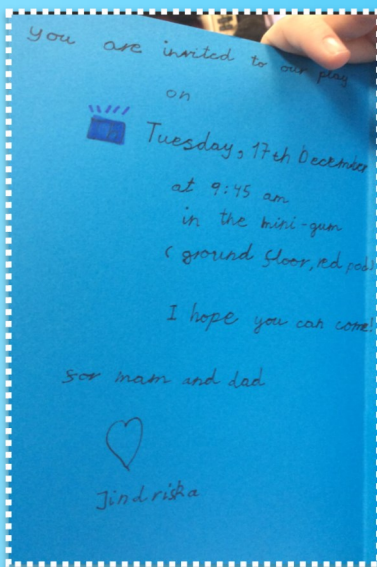 you are invited to our play
on
Tuesday, 17th December
at 9:45 am
in the mini-gum
(ground floor, red pod)
I hope you can come!
for mam and dad
Jindriska